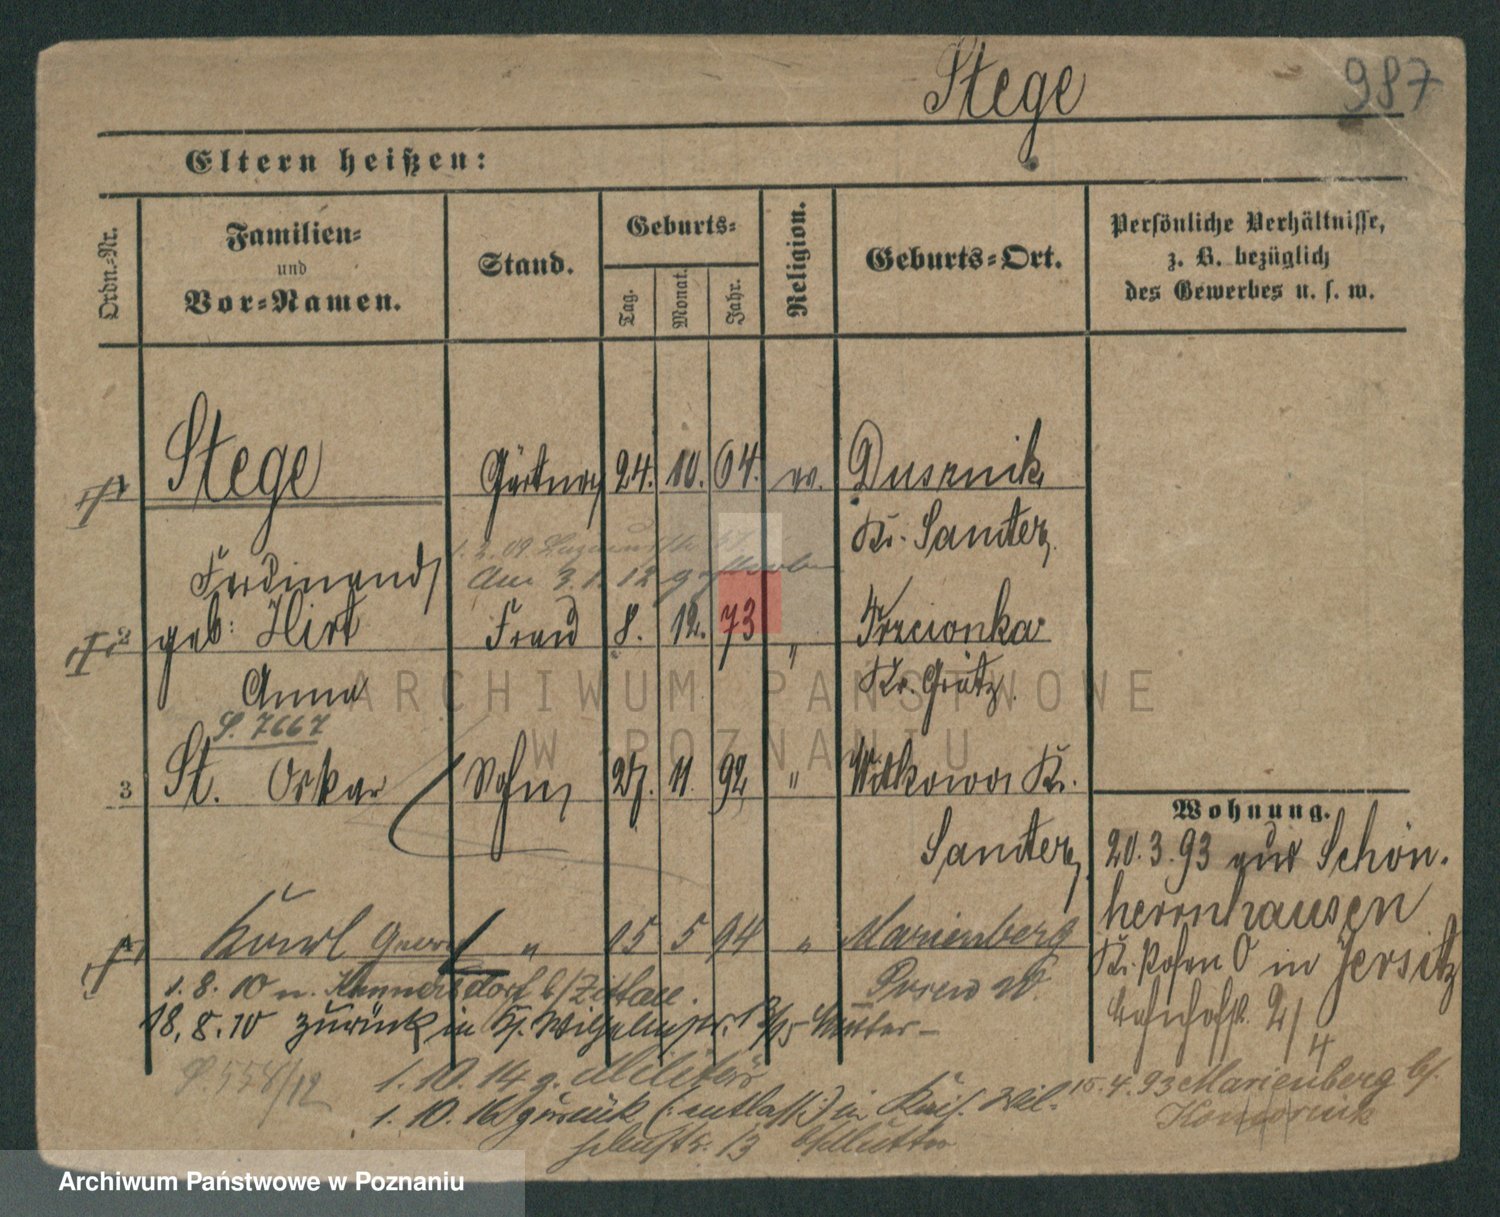 Stege 987
Eltern heißen:
Ordn.-Nr.
Familien-
und
Vor-Namen.
Stand.
Geburts-
Tag. Monat. Jahr.
Religion.
Geburts-Ort.
Persönliche Verhältnisse,
z. B. bezüglich
des Gewerbes u. s. w.
1 Stege Gärtner 24. 10. 64. ev. Dusznik
Kr. Samter
Ferdinand
1. 2. 09
Am 3. 1. 12 gestorben
2 geb: Hirt Frau 8. 12. 73 " Trzcionka
Anna Kr. Grätz.
S. 7667
3 St. Oskar Sohn 27. 11. 92 " Witkowo Kr.
Samter
4 Karl Georg " 15 5 94 " Marienberg
Posen W.
1. 8. 10 n. Kunnersdorf b/Zittau.
18. 8. 10 zurück in Mutter
S. 558/12
1. 10. 14 z. Militär
1. 10. 16 zurück (entlass.) in Kais. Wil-
helmstr. 13 b/Mutter
Wohnung.
20. 3. 93 aus Schön-
herrnhausen
Kr. Posen O in Jersitz
Bahnhofst. 2/
4
15. 4. 93 Marienberg b/.
Komornik
ARCHIWUM PAŃSTWOWE
W POZNANIU
Archiwum Państwowe w Poznaniu